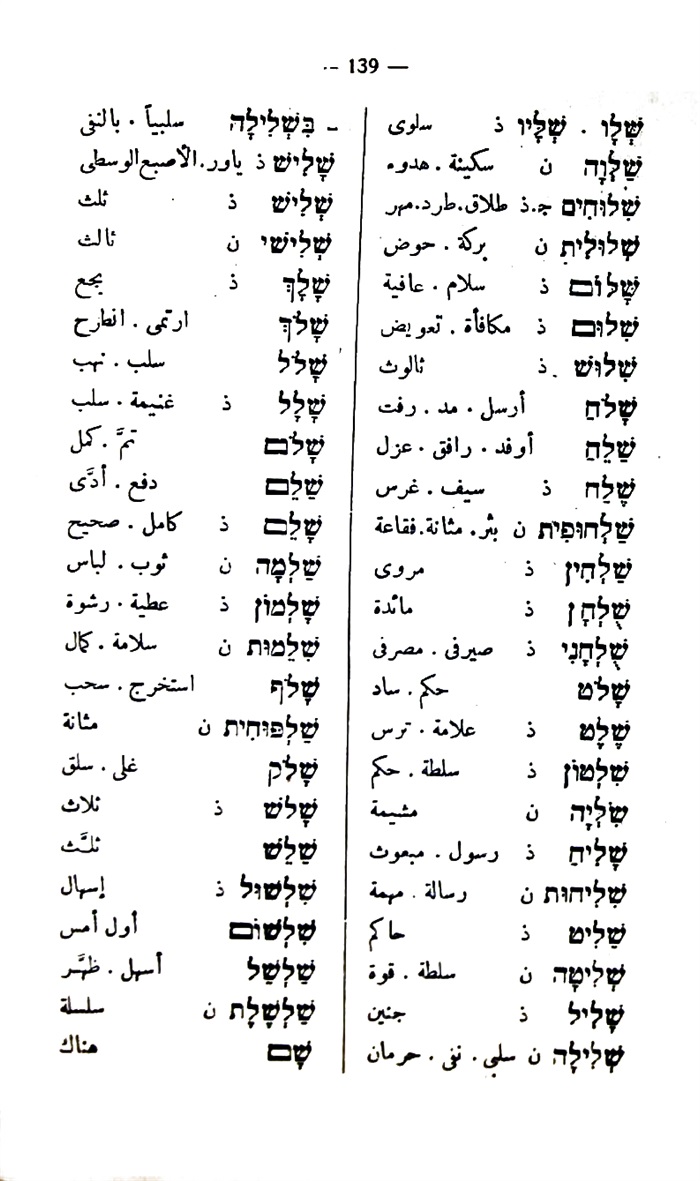 — 139 —
שָׁלֵו . שָׁלָיו ذ سلوى
שַׁלְוָה ن سكينة . هدوء
שִׁלוּחִים ج.ذ طلاق.طرد.مهر
שְׁלוּלִית ن بركة . حوض
שָׁלוֹם ذ سلام . عافية
שִׁלּוּם ذ مكافأة . تعويض
שִׁלּוּשׁ ذ ثالوث
שָׁלֹחַ أرسل . مد . رفت
שַׁלֵּחַ أوفد . رافق . عزل
שֶׁלַח ذ سيف . غرس
שַׁלְחוּפִית ن بثر . مثانة . فقاعة
שַׁלְחִין ذ مروى
שֻׁלְחָן ذ مائدة
שֻׁלְחָנִי ذ صيرفى . مصرفى
שָׁלֹט حكم . ساد
שֶׁלֶט ذ علامة . ترس
שִׁלְטוֹן ذ سلطة . حكم
שִׁלְיָה ن مشيمة
שָׁלִיחַ ذ رسول . مبعوث
שְׁלִיחוּת ن رسالة . مهمة
שַׁלִּיט ذ حاكم
שְׁלִיטָה ن سلطة . قوة
שָׁלִיל ذ جنين
שְׁלִילָה ن سلبى . ننى . حرمان
- בִּשְׁלִילָה سلبياً . بالننى
שָׁלִישׁ ذ ياور . الأصبع الوسطى
שְׁלִישׁ ذ ثلث
שְׁלִישִׁי ن ثالث
שָׁלָךְ ذ بجع
שָׁלֹךְ ارتمى . انطارح
שָׁלֹל سلب . نهب
שָׁלָל ذ غنيمة . سلب
שָׁלֹם تمَّ . كمل
שַׁלֵּם دفع . أدَّى
שָׁלֵם ذ كامل . صحيح
שַׂלְמָה ن ثوب . لباس
שַׁלְמוֹן ذ عطية . رشوة
שְׁלֵמוּת ن سلامة . كمال
שָׁלֹף استخرج . سحب
שַׁלְפּוּחִית ن مثانة
שָׁלֹק غلى . سلق
שָׁלֹשׁ ذ ثلاث
שַׁלֵּשׁ ثلَّث
שִׁלְשׁוּל ذ إسهال
שִׁלְשׁוֹם أول أمس
שִׁלְשֵׁל أسهل . طهَّر
שַׁלְשֶׁלֶת ن سلسلة
שָׁם هناك